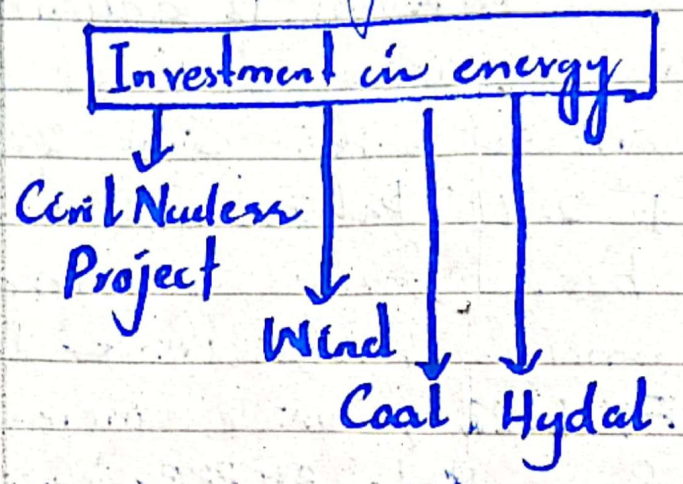 Investment in energy
Civil Nuclear
Project
Wind
Coal Hydal.